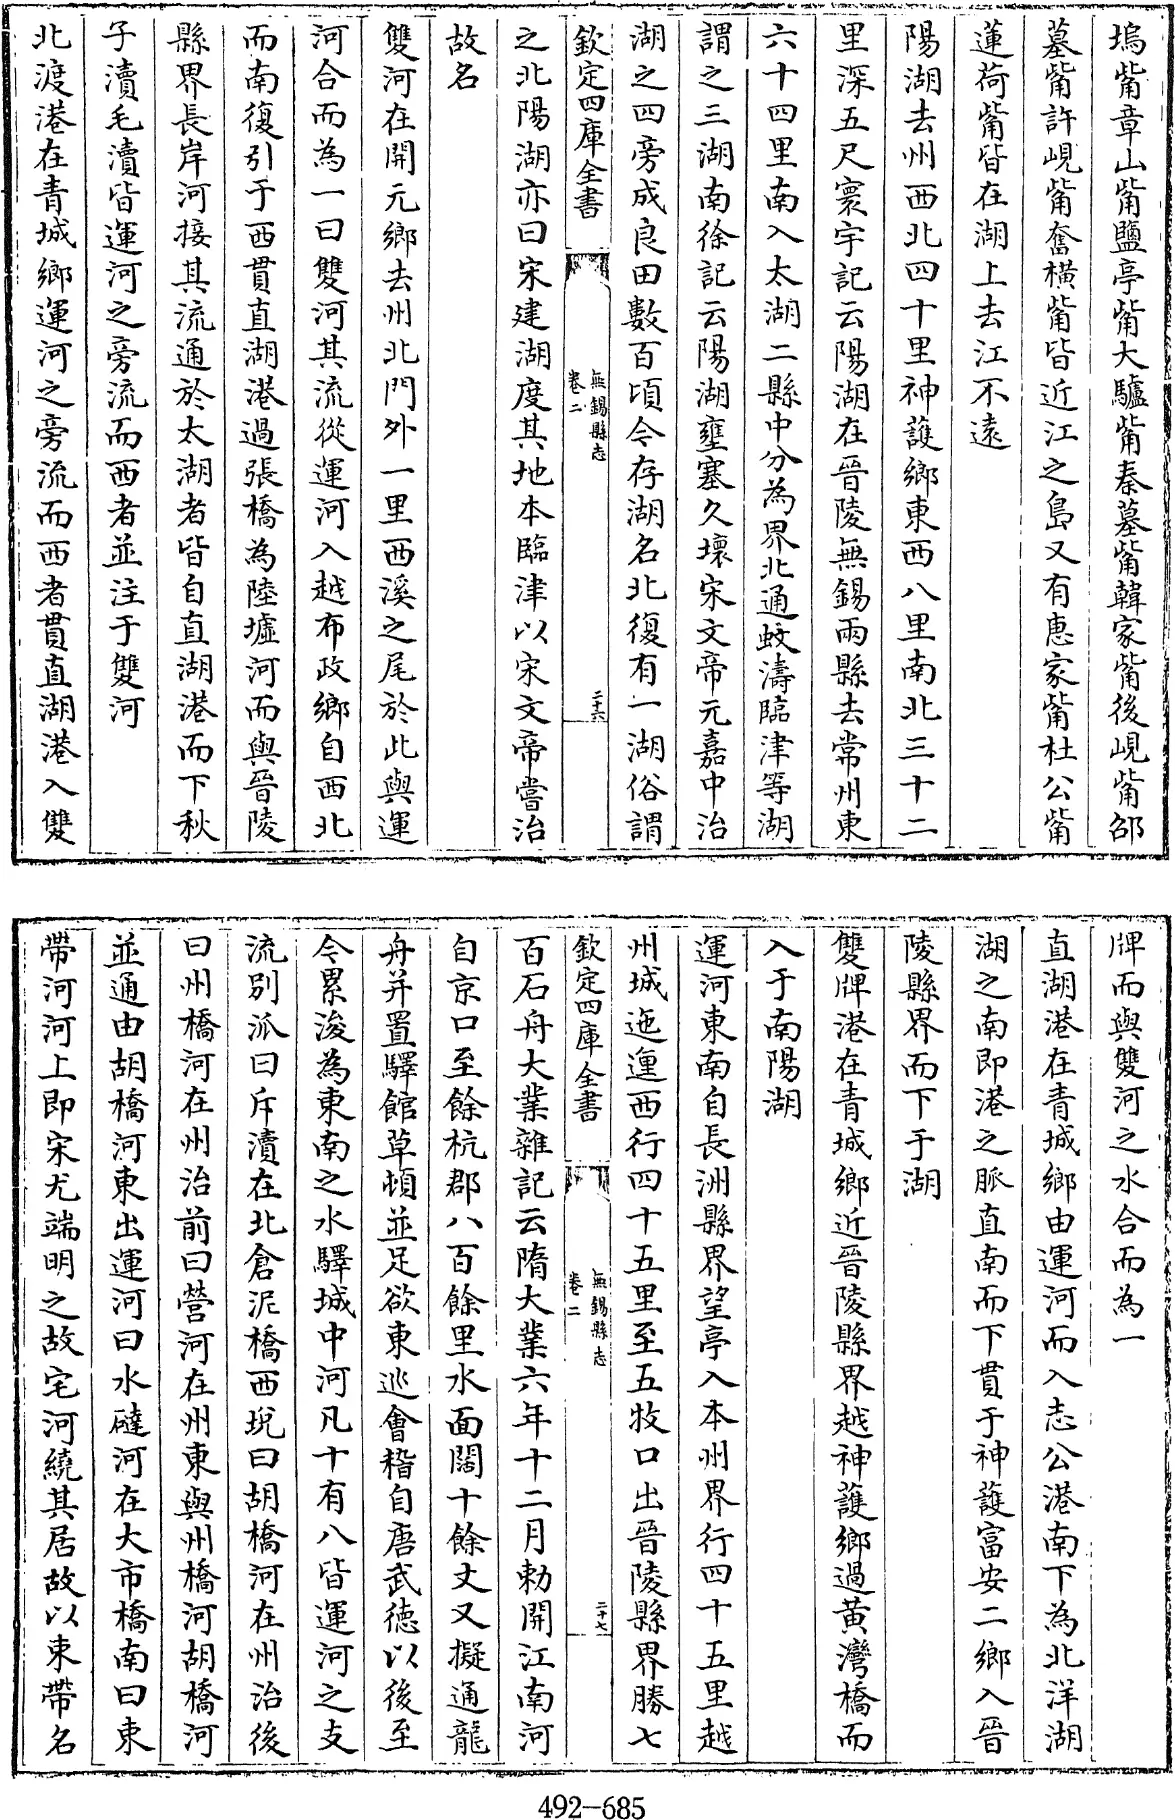 塢觜章山觜鹽亭觜大驢觜秦墓觜韓家觜後峴觜邵
墓觜許峴觜奮橫觜皆近江之島又有恵家觜杜公觜
蓮荷觜皆在湖上去江不遠
陽湖去州西北四十里神護鄉東西八里南北三十二
里深五尺寰宇記云陽湖在晉陵無錫兩縣去常州東
六十四里南入太湖二縣中分為界北通蛟濤臨津等湖
謂之三湖南徐記云陽湖壅塞久壞宋文帝元嘉中治
湖之四旁成良田數百頃今存湖名北復有一湖俗謂
欽定四庫全書
無錫縣志
卷二
二十六
之北陽湖亦曰宋建湖度其地本臨津以宋文帝嘗治
故名
雙河在開元鄉去州北門外一里西溪之尾於此與運
河合而為一曰雙河其流從運河入越布政鄉自西北
而南復引于西貫直湖港過張橋為陸墟河而與晉陵
縣界長岸河接其流通於太湖者皆自直湖港而下秋
子瀆毛瀆皆運河之旁流而西者並注于雙河
北渡港在青城鄉運河之旁流而西者貫直湖港入雙
牌而與雙河之水合而為一
直湖港在青城鄉由運河而入志公港南下為北洋湖
湖之南即港之脈直南而下貫于神護富安二鄉入晉
陵縣界而下于湖
雙牌港在青城鄉近晉陵縣界越神護鄉過黃灣橋而
入于南陽湖
運河東南自長洲縣界望亭入本州界行四十五里越
州城迤𨓦西行四十五里至五牧口出晉陵縣界勝七
欽定四庫全書
無錫縣志
卷二
二十七
百石舟大業雜記云隋大業六年十二月勅開江南河
自京口至餘杭郡八百餘里水面闊十餘丈又擬通龍
舟并置驛館草頓並足欲東巡會稽自唐武徳以後至
今累浚為東南之水驛城中河凡十有八皆運河之支
流別派曰斥瀆在北倉泥橋西堍曰胡橋河在州治後
曰州橋河在州治前曰營河在州東與州橋河胡橋河
並通由胡橋河東出運河曰水䃯河在大市橋南曰東
帶河河上即宋尤端明之故宅河繞其居故以東帶名
492-685